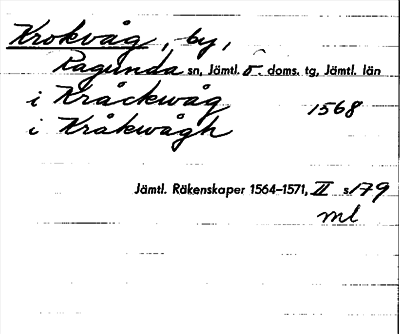 Krokvåg, by,
Ragunda sn, Jämtl. ö. doms. tg, Jämtl. län
i Kråckwåg 1568
i Kråkwågh
Jämtl. Räkenskaper 1564–1571, II s 179
ml